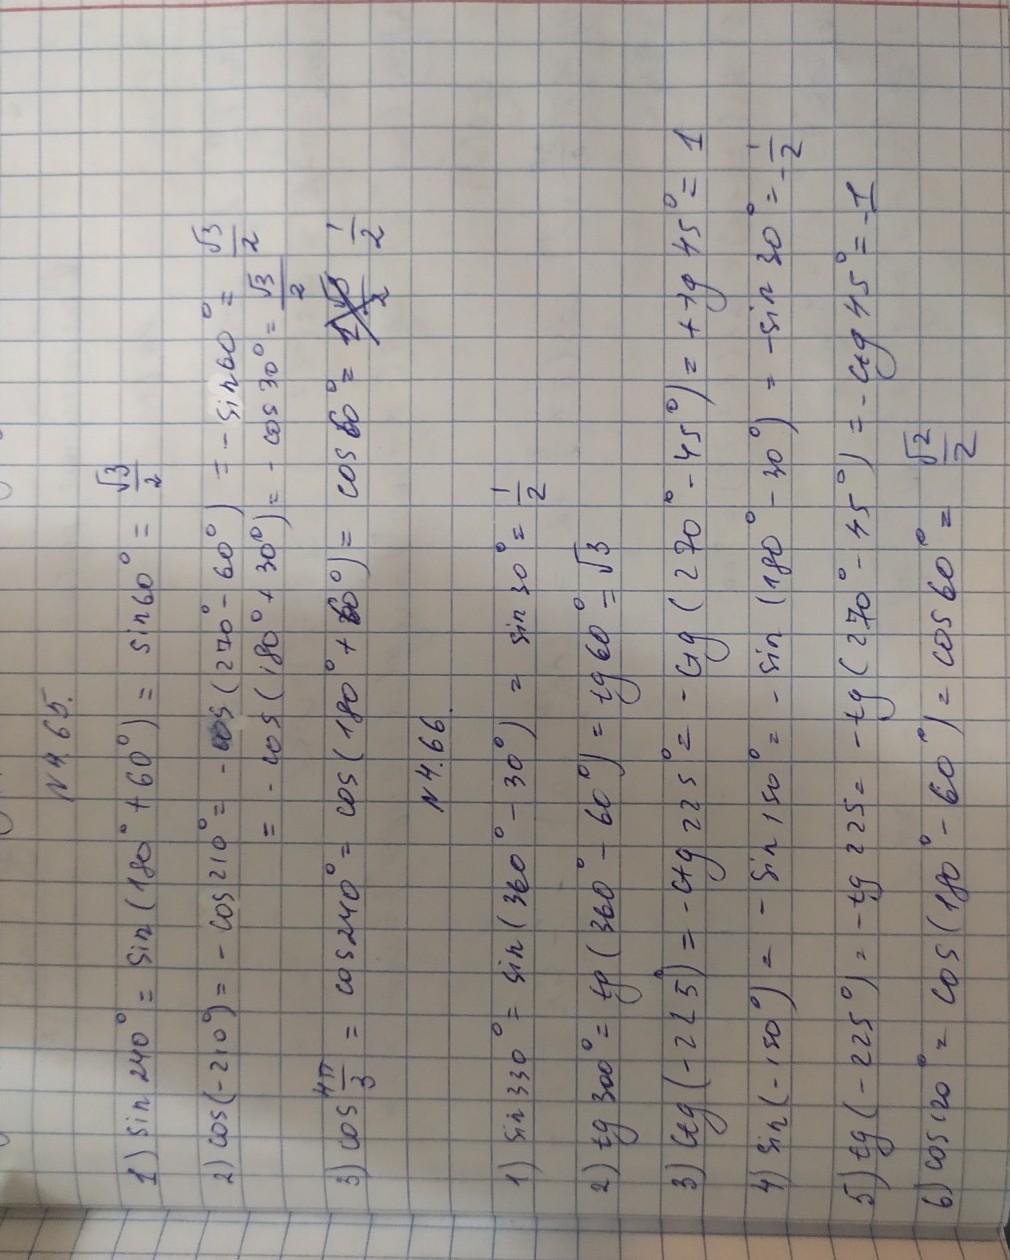 N 4.65.
1) sin 240° = sin (180° + 60°) = sin 60° = √3/2
2) cos(-210°) = - cos 210° = - cos (270° - 60°) = - sin 60° = √3/2
= - cos (180° + 30°) = - cos 30° = √3/2
3) cos 4π/3 = cos 240° = cos (180° + 60°) = cos 60° = 1/2
N 4.66.
1) sin 330° = sin (360° - 30°) = sin 30° = 1/2
2) tg 300° = tg (360° - 60°) = tg 60° = √3
3) ctg (-225°) = - ctg 225° = - ctg (270° - 45°) = + tg 45° = 1
4) sin (-150°) = - sin 150° = - sin (180° - 30°) = - sin 30° = - 1/2
5) tg (- 225°) = - tg 225 = - tg (270° - 45°) = - ctg 45° = - 1
6) cos 120° = cos (180° - 60°) = cos 60° = √2/2